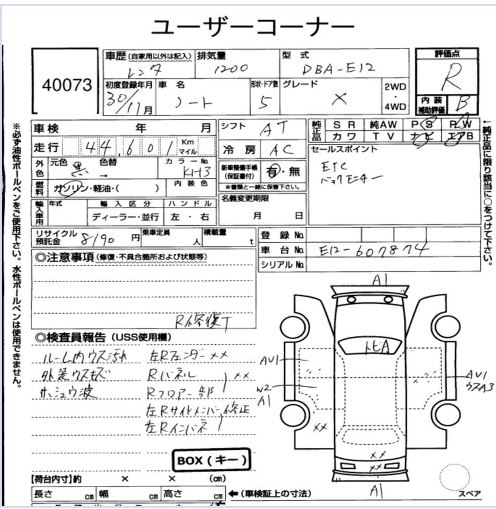 ユーザーコーナー
40073
車歴 (自家用以外は記入) レンタ
排気量 1200
型式 DBA-E12
評価点 R
初度登録年月 30年11月
車名 ノート
形状・ドア数 5
グレード X
2WD・4WD
内装補助評価 B
車検 年 月
シフト AT
純正品 SR 純AW P(S) R.W カワ TV ナビ エアB
走行 44,601 Km マイル
冷房 AC
セールスポイント
ETC
バックモニター
外色 元色 色替 カラーNo KH3
新車整備手帳(保証書付) 有・無
※書類と一緒に保管下さい。
燃料 ガソリン・軽油・( ) 内装色
名義変更期限 月 日
輸入車用 年式 輸入区分 ハンドル
ディーラー・並行 左・右
リサイクル預託金 8190円
乗車定員 人
積載量 t
登録No
車台No E12-607874
シリアルNo
◎注意事項 (修復・不具合箇所および状態等)
R修復T
◎検査員報告 (USS使用欄)
ルーム内ウス汚れ 左Rフェンダー××
外装ウスキズ Rパネル
Rフロアー部 ××
左Rサイドメンバー修正
左Rインパネ
BOX (キー)
【荷台内寸】約 × × (cm)
長さ cm 幅 cm 高さ cm ←(車検証上の寸法)
A1
トビA
AU1
W2
A1
AU1
××
××
××
A1
スペアー
※必ず油性ボールペンをご使用下さい。水性ボールペンは使用できません。
←純正品に限り該当に○をつけて下さい。